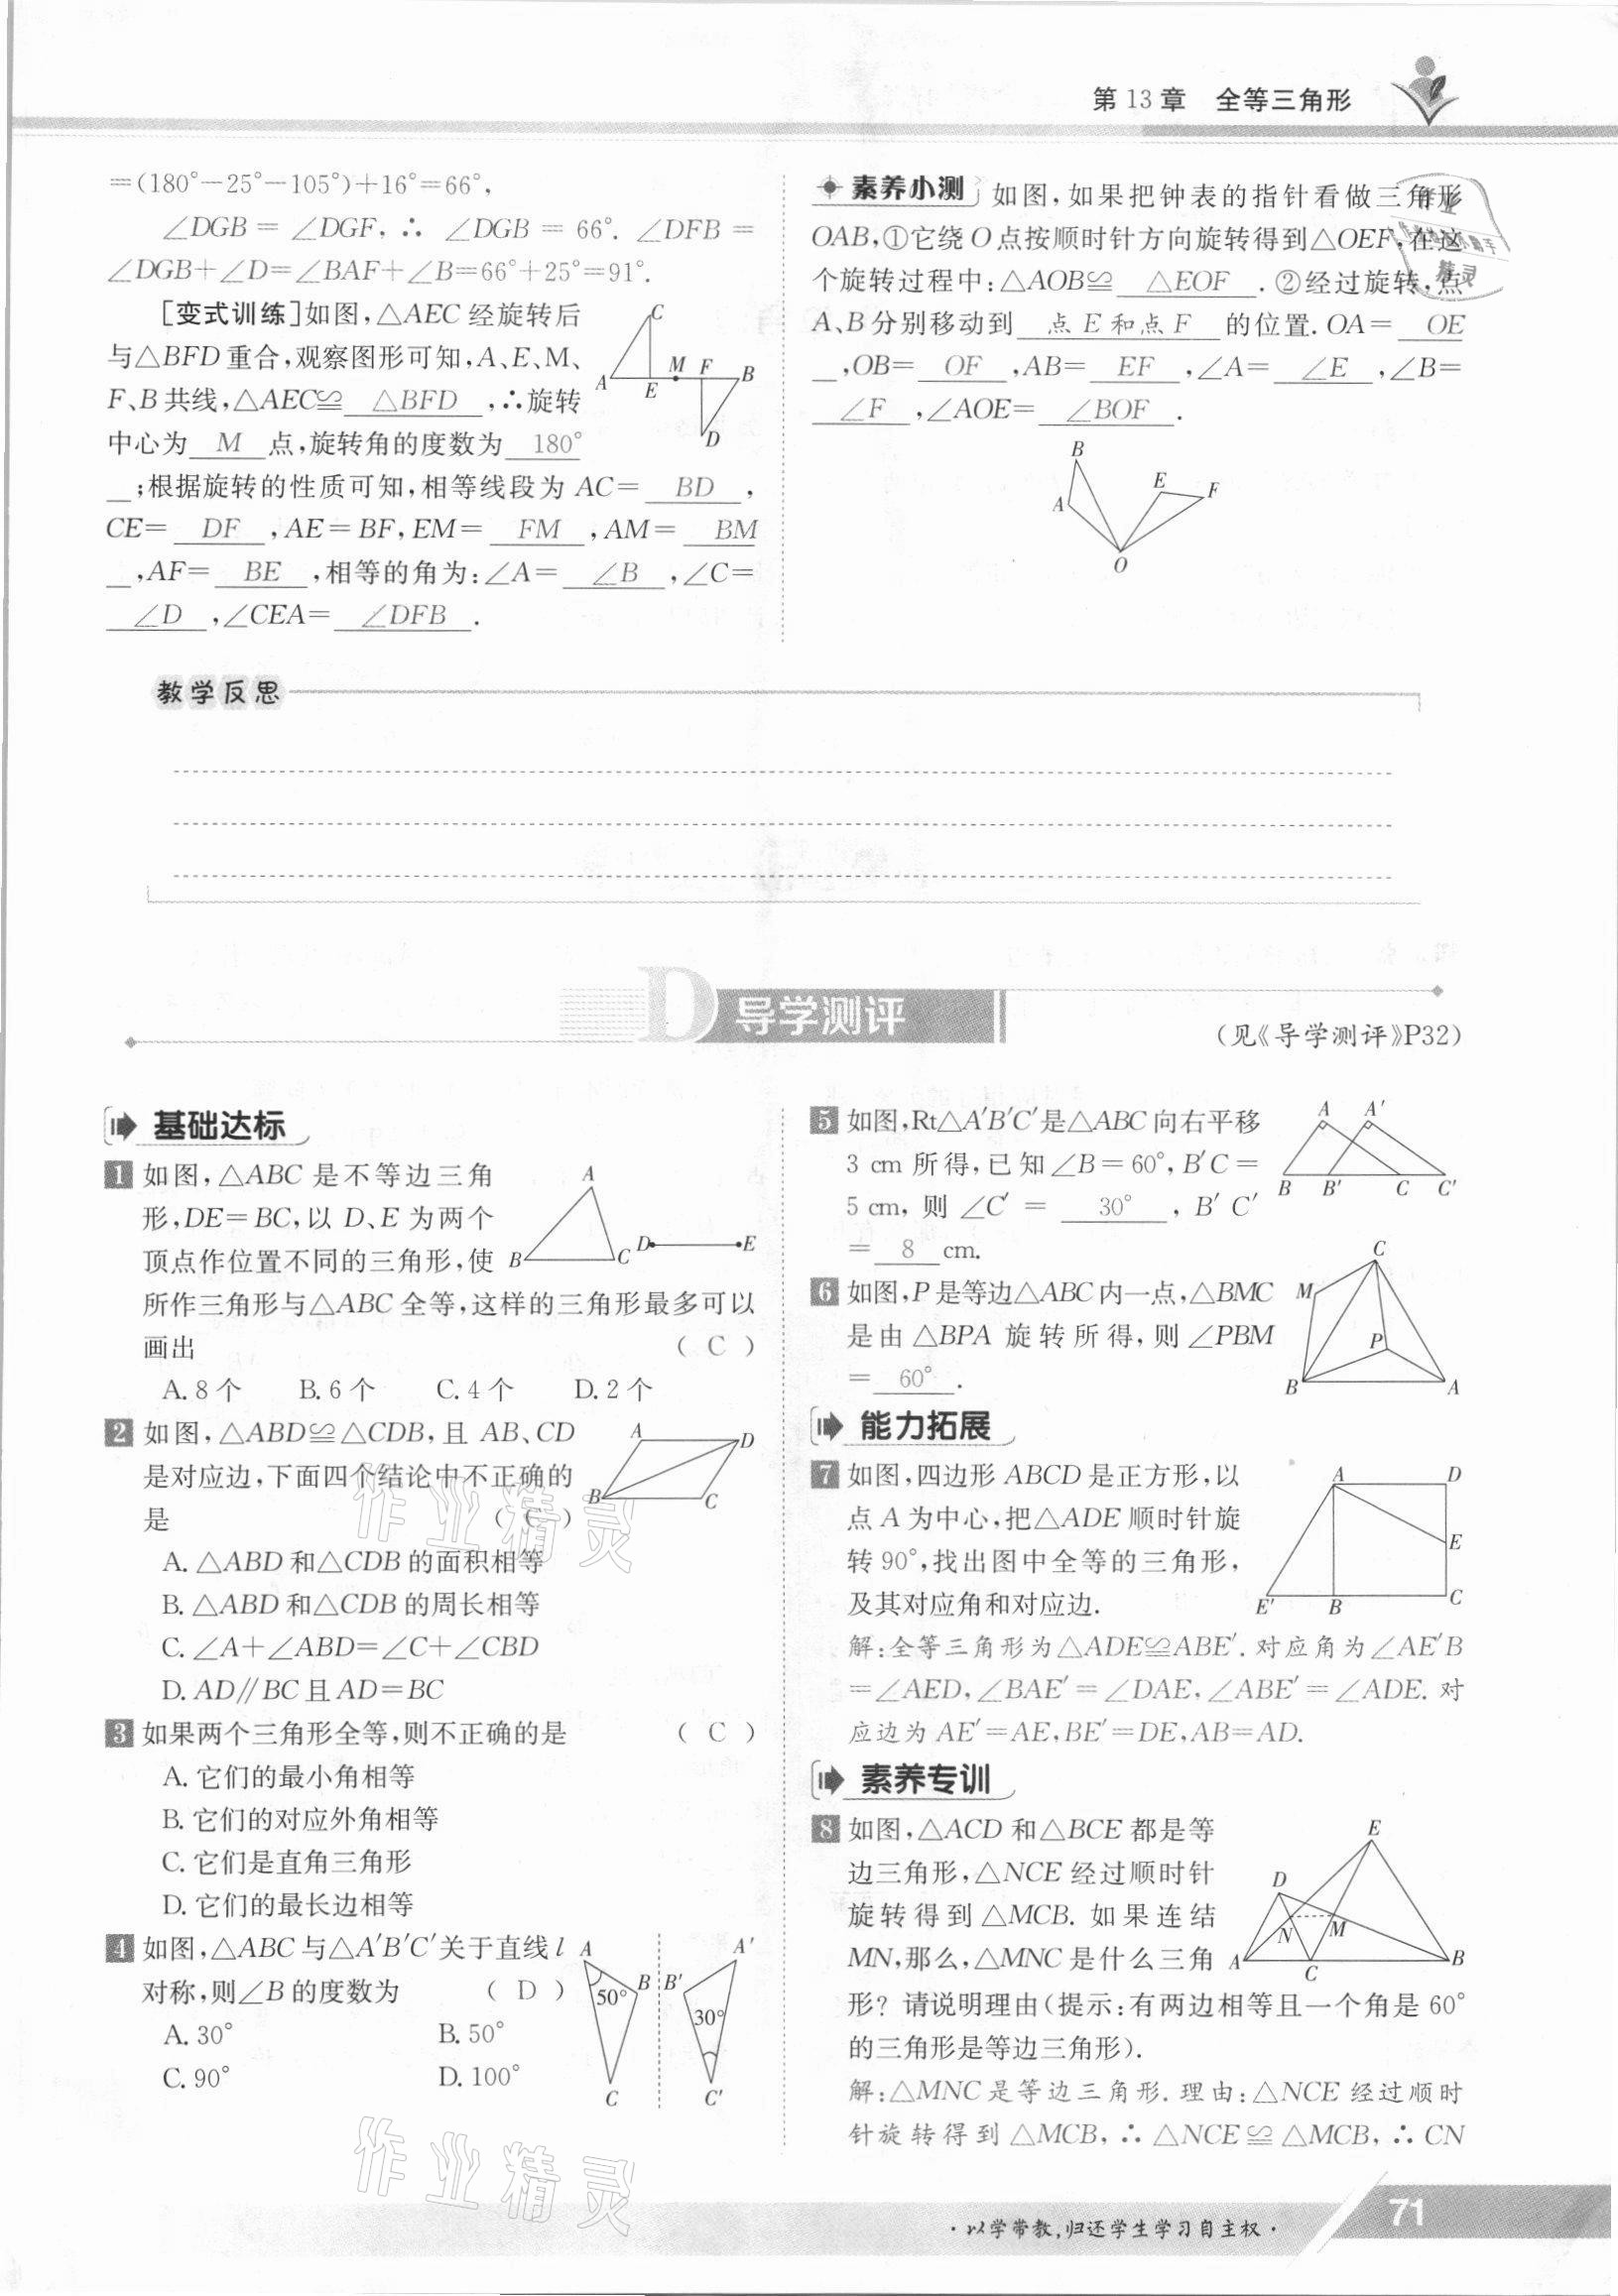 第 13 章 全等三角形
=(180°-25°-105°)+16°=66°,
∠DGB = ∠DGF, ∴ ∠DGB = 66°. ∠DFB =
∠DGB+∠D=∠BAF+∠B=66°+25°=91°.
[变式训练]如图,△AEC 经旋转后
与△BFD 重合,观察图形可知,A、E、M、
F、B 共线,△AEC≌ △BFD ,∴旋转
中心为 M 点,旋转角的度数为 180°
;根据旋转的性质可知,相等线段为 AC= BD ,
CE= DF ,AE=BF,EM= FM ,AM= BM
,AF= BE ,相等的角为:∠A= ∠B ,∠C=
∠D ,∠CEA= ∠DFB .
C
A E M F B
D
素养小测 如图,如果把钟表的指针看做三角形
OAB,①它绕 O 点按顺时针方向旋转得到△OEF,在这
个旋转过程中:△AOB≌ △EOF .②经过旋转,点
A、B 分别移动到 点 E 和点 F 的位置. OA= OE
,OB= OF ,AB= EF ,∠A= ∠E ,∠B=
∠F ,∠AOE= ∠BOF .
B
A E F
O
教学反思
D 导学测评
(见《导学测评》P32)
基础达标
1 如图,△ABC 是不等边三角
形,DE=BC,以 D、E 为两个
顶点作位置不同的三角形,使
所作三角形与△ABC 全等,这样的三角形最多可以
画出 ( C )
A. 8 个 B. 6 个 C. 4 个 D. 2 个
A
B C D E
2 如图,△ABD≌△CDB,且 AB、CD
是对应边,下面四个结论中不正确的
是 ( C )
A. △ABD 和△CDB 的面积相等
B. △ABD 和△CDB 的周长相等
C. ∠A+∠ABD=∠C+∠CBD
D. AD∥BC 且 AD=BC
A D
B C
3 如果两个三角形全等,则不正确的是 ( C )
A. 它们的最小角相等
B. 它们的对应外角相等
C. 它们是直角三角形
D. 它们的最长边相等
4 如图,△ABC 与△A′B′C′关于直线 l
对称,则∠B 的度数为 ( D )
A. 30° B. 50°
C. 90° D. 100°
A A′
50° B B′ 30°
C C′
5 如图,Rt△A′B′C′是△ABC 向右平移
3 cm 所得,已知∠B=60°,B′C=
5 cm, 则 ∠C′ = 30° , B′ C′
= 8 cm.
A A′
B B′ C C′
6 如图,P 是等边△ABC 内一点,△BMC
是由 △BPA 旋转所得,则 ∠PBM
= 60° .
C
M
P
B A
能力拓展
7 如图,四边形 ABCD 是正方形,以
点 A 为中心,把△ADE 顺时针旋
转 90°,找出图中全等的三角形,
及其对应角和对应边.
A D
E
E′ B C
解:全等三角形为△ADE≌ABE′.对应角为∠AE′B
=∠AED,∠BAE′=∠DAE,∠ABE′=∠ADE. 对
应边为 AE′=AE,BE′=DE,AB=AD.
素养专训
8 如图,△ACD 和△BCE 都是等
边三角形,△NCE 经过顺时针
旋转得到 △MCB. 如果连结
MN,那么,△MNC 是什么三角
形? 请说明理由(提示:有两边相等且一个角是 60°
的三角形是等边三角形).
E
D
N M
A C B
解:△MNC 是等边三角形. 理由:△NCE 经过顺时
针旋转得到 △MCB, ∴ △NCE≌△MCB, ∴ CN
作业精灵
作业精灵
·以学带教,归还学生学习自主权·
71